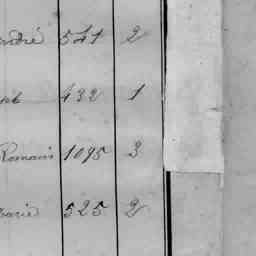 André 541 2
432 1
Romain 1095 3
Marie 525 2